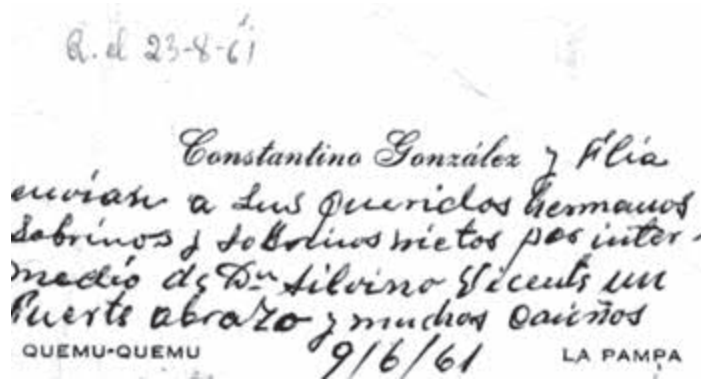 R. el 23-8-61
Constantino González y Flia
envian a sus queridos hermanos
sobrinos y sobrinos nietos por inter-
medio de Dn Silvino Vicente un
fuerte abrazo y muchos cariños
QUEMU-QUEMU 9/6/61 LA PAMPA